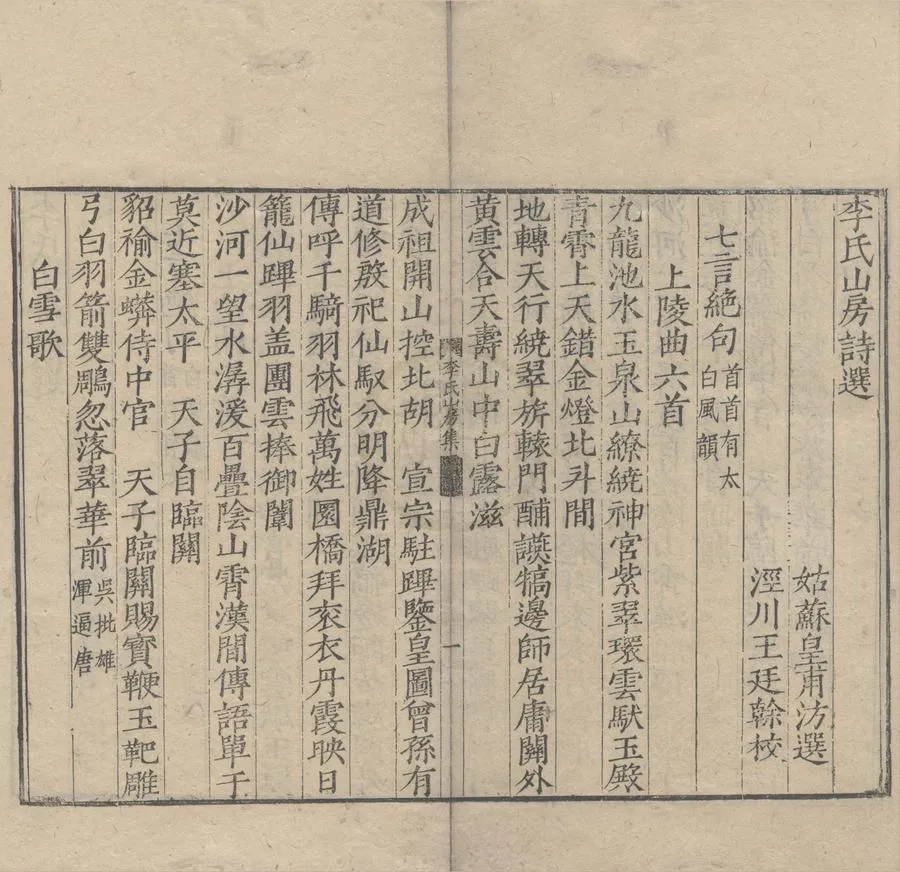 李氏山房詩選
姑蘇皇甫汸選
涇川王廷榦校
七言絶句首首有太白風韻
上陵曲六首
九龍池水玉泉山繚繞神宮紫翠環雲馱玉殿
青霄上天錯金燈北斗間
地轉天行繞翠旂轅門酺讌犒邊師居庸關外
黄雲合天壽山中白露滋
成祖開山控北胡　宣宗駐蹕鑒皇圖曾孫有
道修殷祀仙馭分明降鼎湖
傳呼千騎羽林飛萬姓圜橋拜衮衣丹霞映日
籠仙蹕羽盖團雲捧御闈
沙河一望水潺湲百疊陰山霄漢間傳語單于
莫近塞太平　天子自臨關
貂褕金蟒侍中官　天子臨關賜寳鞭玉靶雕
弓白羽箭雙鵰忽落翠華前吳批雄渾逼唐
白雪歌
李氏山房集
一